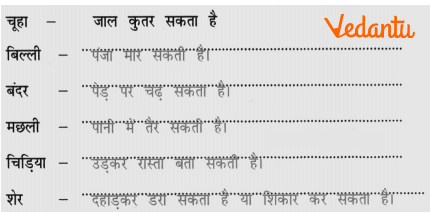 चूहा – जाल कुतर सकता है
Vedantu
बिल्ली – पंजा मार सकती है।
बंदर – पेड़ पर चढ़ सकता है।
मछली – पानी में तैर सकती है।
चिड़िया – उड़कर रास्ता बता सकती है।
शेर – दहाड़कर डरा सकता है या शिकार कर सकता है।